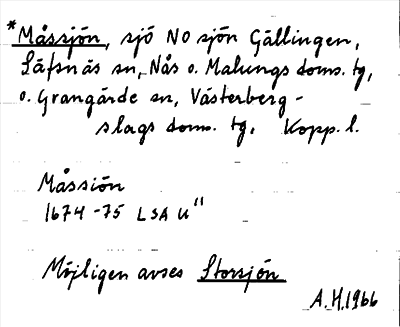 *Måssjön, sjö NO sjön Gällingen,
Säfsnäs sn, Nås o. Malungs doms. tg,
o. Grangärde sn, Västerberg-
slags doms. tg. Kopp. l.
Måssiön
1674-75 LSA U"
Möjligen avses Storsjön
A.H. 1966